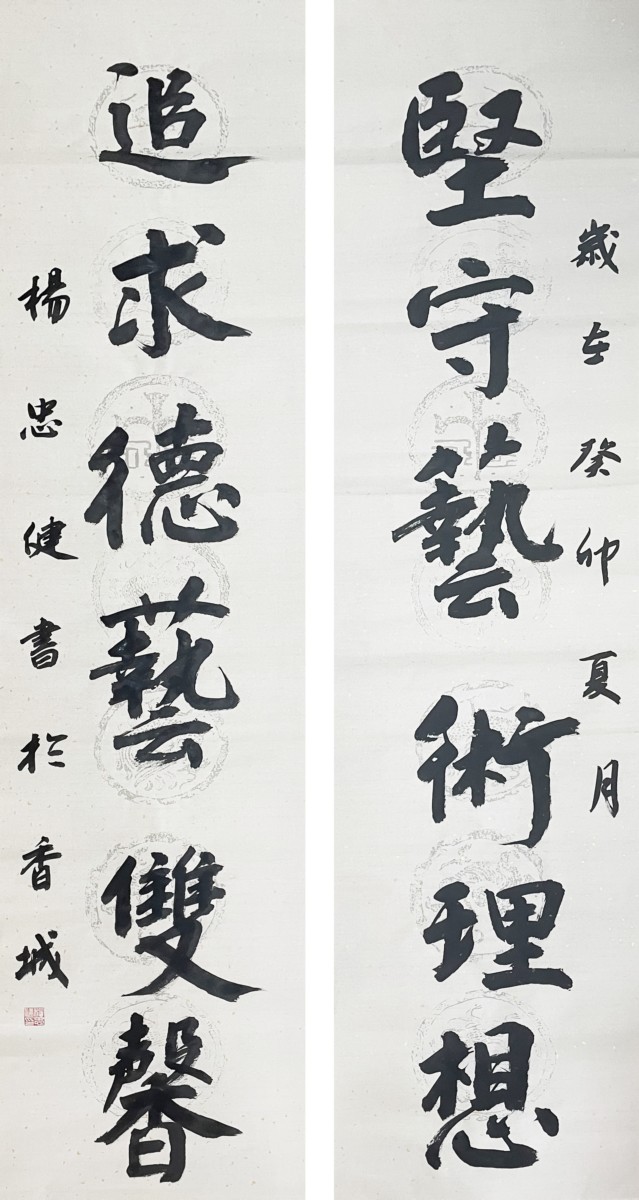 歲在癸卯夏月
堅守藝術理想
追求德藝雙馨
楊忠健書於香城